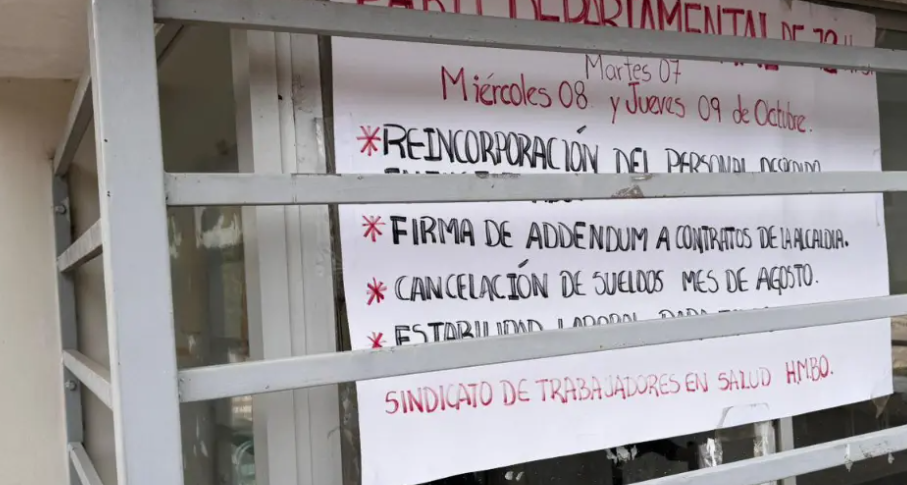 PARO DEPARTAMENTAL DE 72
Martes 07
Miércoles 08 y Jueves 09 de Octubre.
*REINCORPORACIÓN DEL PERSONAL DESPEDIDO
* FIRMA DE ADDENDUM A CONTRATOS DE LA ALCALDIA.
* CANCELACIÓN DE SUELDOS MES DE AGOSTO.
* ESTABILIDAD LABORAL PARA
SINDICATO DE TRABAJADORES EN SALUD H.M.B.O.